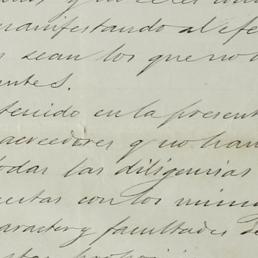 manifestando al efe
s sean los que no
antes.
tenido en la present
acreedores q no han
todas las diligencias
uestas con los mism
caracter y facultades de